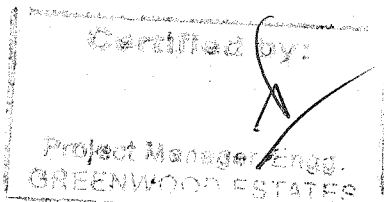 Certified by:
Project Manager Engg.
GREENWOOD ESTATES